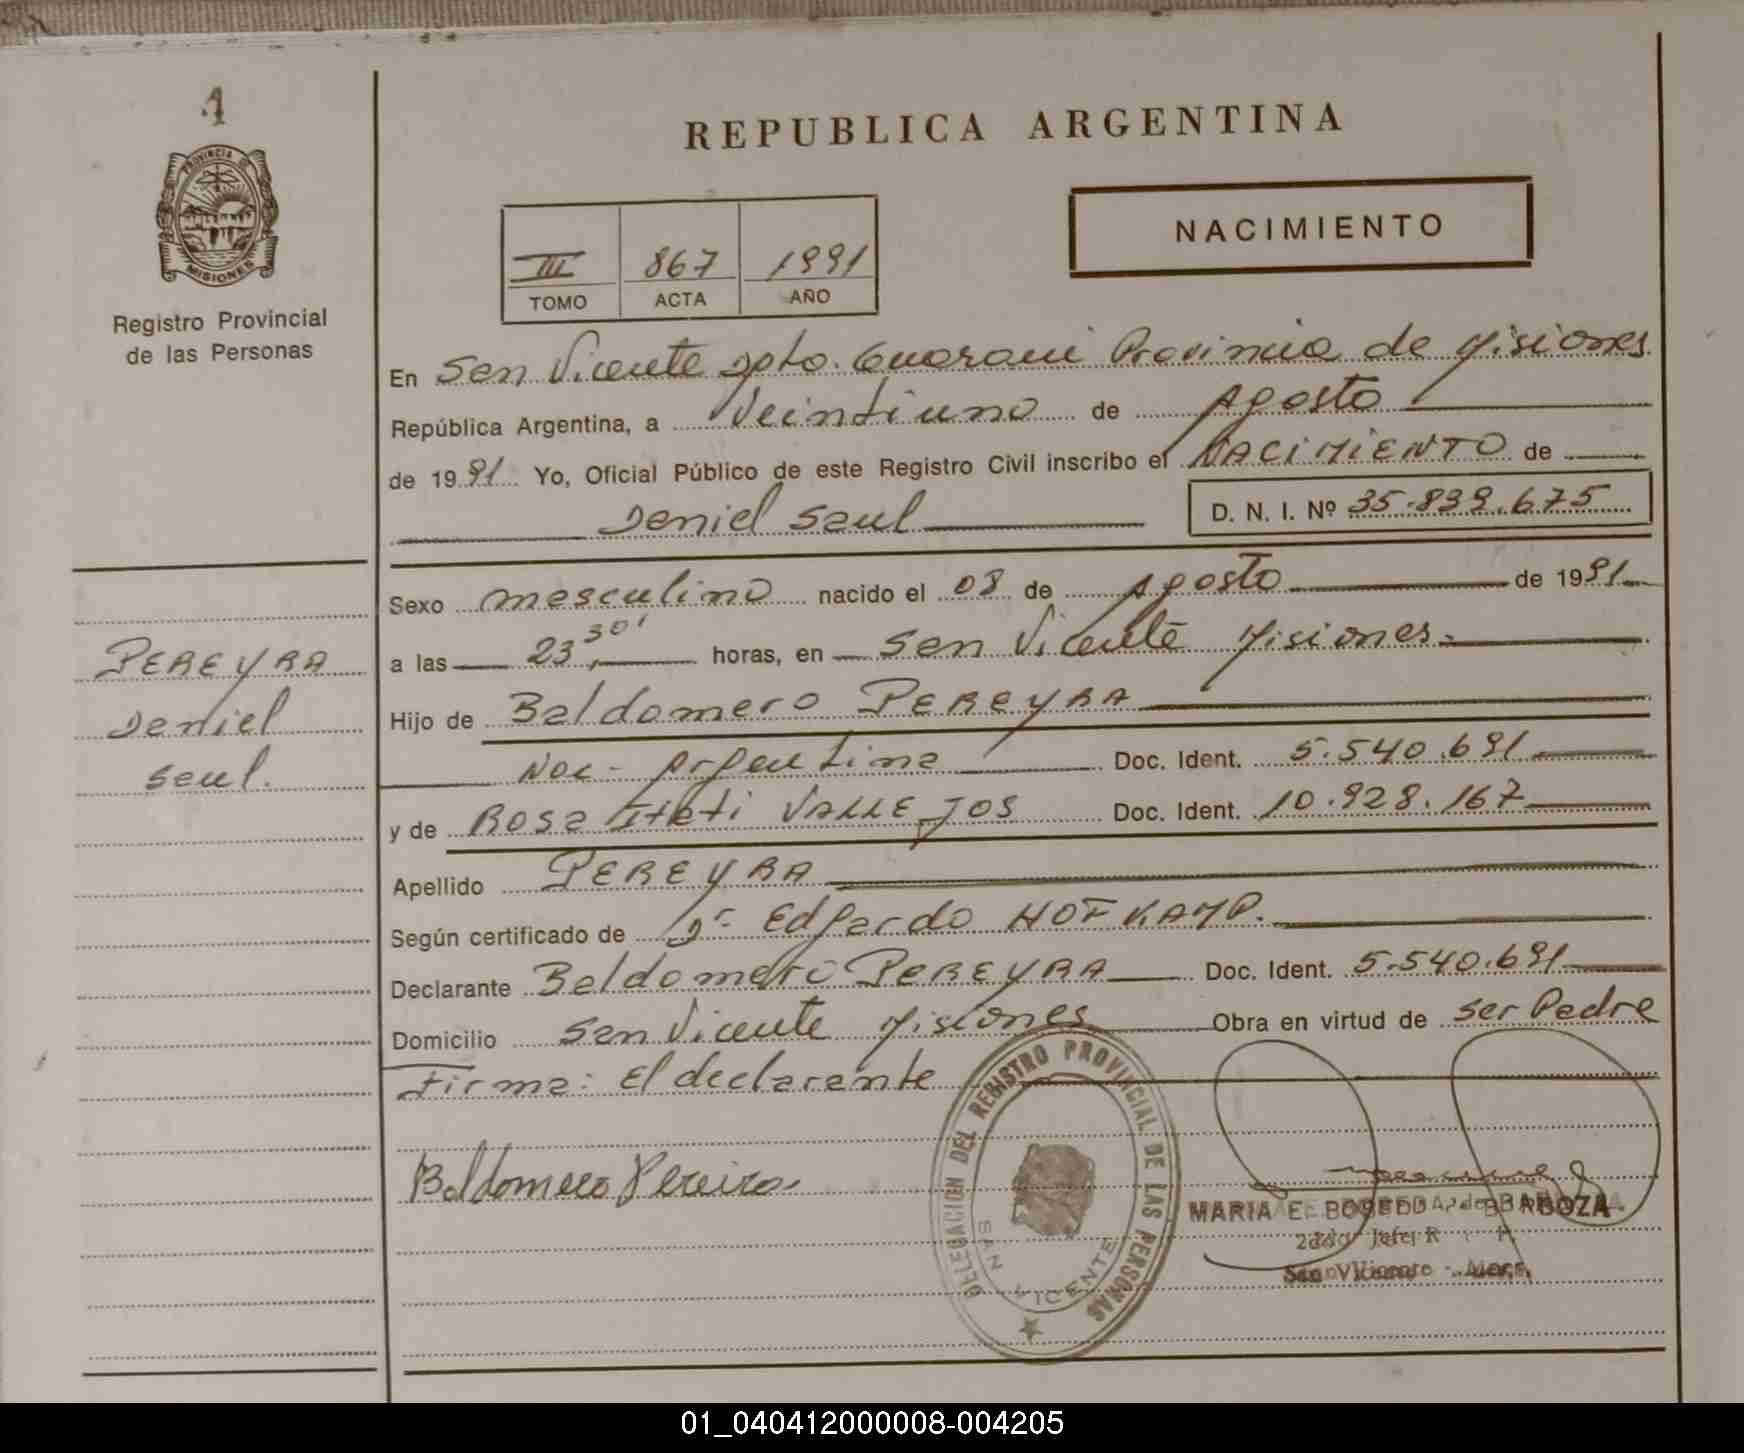 1
PROVINCIA DE
MISIONES
Registro Provincial
de las Personas
REPUBLICA ARGENTINA
NACIMIENTO
III 867 1991
TOMO ACTA AÑO
En San Vicente Dpto. Guarani Provincia de Misiones
República Argentina, a Veintiuno de Agosto
de 1991 Yo, Oficial Público de este Registro Civil inscribo el NACIMIENTO de
Daniel Saul D. N. I. Nº 35.839.675
Sexo masculino nacido el 08 de Agosto de 1991
a las 23,30' horas, en San Vicente Misiones
Hijo de Baldomero PEREYRA
Nac- Argentina Doc. Ident. 5.540.691
y de Rosa Itati VALLEJOS Doc. Ident. 10.928.167
Apellido PEREYRA
Según certificado de Dr Edgardo HOFKAMP.
Declarante Baldomero PEREYRA Doc. Ident. 5.540.691
Domicilio San Vicente Misiones Obra en virtud de ser Padre
Firma: El declarante
Baldomero Pereira
PEREYRA
Daniel
Saul.
DELEGACION DEL REGISTRO PROVINCIAL DE LAS PERSONAS
SAN VICENTE
MARIA E. BARBOZA
San Vicente
01_040412000008-004205